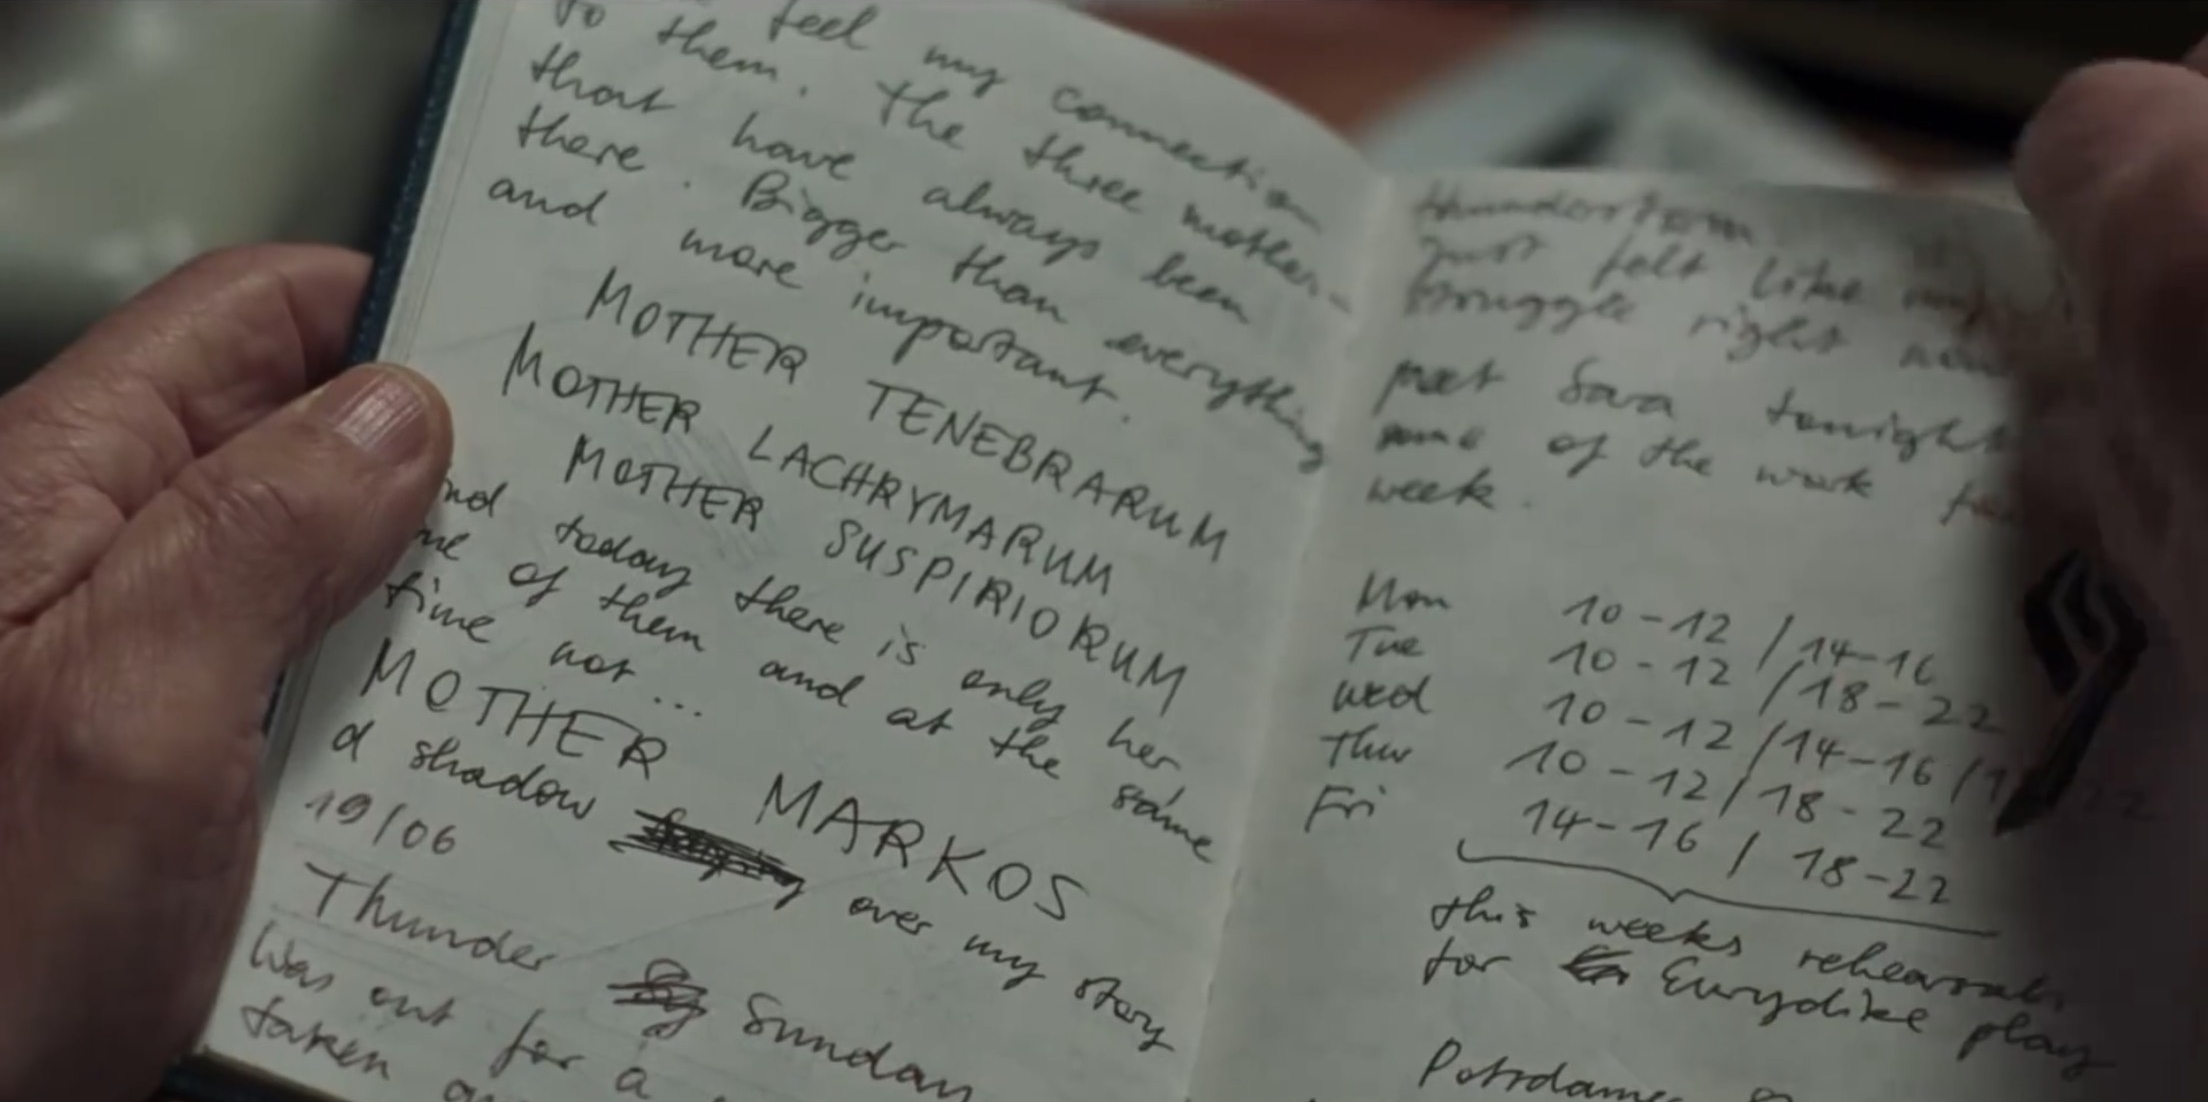 feel my connection
to them. The three mothers
that have always been
there. Bigger than everything
and more important.
MOTHER TENEBRARUM
MOTHER LACHRYMARUM
MOTHER SUSPIRIORUM
and today there is only her
one of them and at the same
time not...
MOTHER MARKOS
a shadow over my story
19/06
Thunder Sunday
Was out for a
taken
thunderstorm
just felt like my
struggle right now
met Sara tonight
some of the work
week.
Mon 10-12 / 14-16
Tue 10-12 / 18-22
Wed 10-12 / 14-16 /
Thur 10-12 / 18-22
Fri 14-16 / 18-22
this weeks rehearsals
for Eurydike play